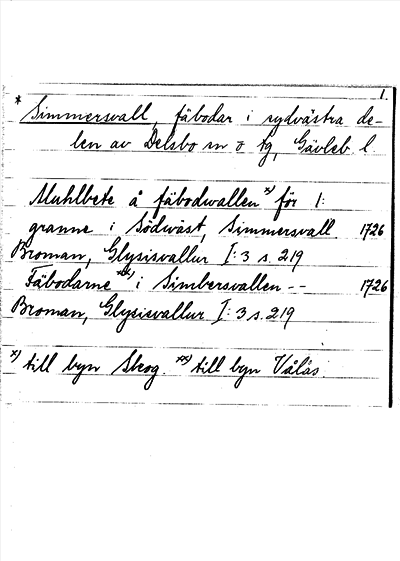 1.
* Simmersvall, fäbodar i sydvästra de-
len av Delsbo sn o tg, Gävleb. l.
Muhlbete å fäbodwallen x) för 1:
granne i Södwäst, Simmersvall 1726
Broman, Glysisvallur I:3 s. 219
Fäbodarne xx) i Simbersvallen -- 1726
Broman, Glysisvallur I:3 s. 219
x) till byn Skog. xx) till byn Vålås.